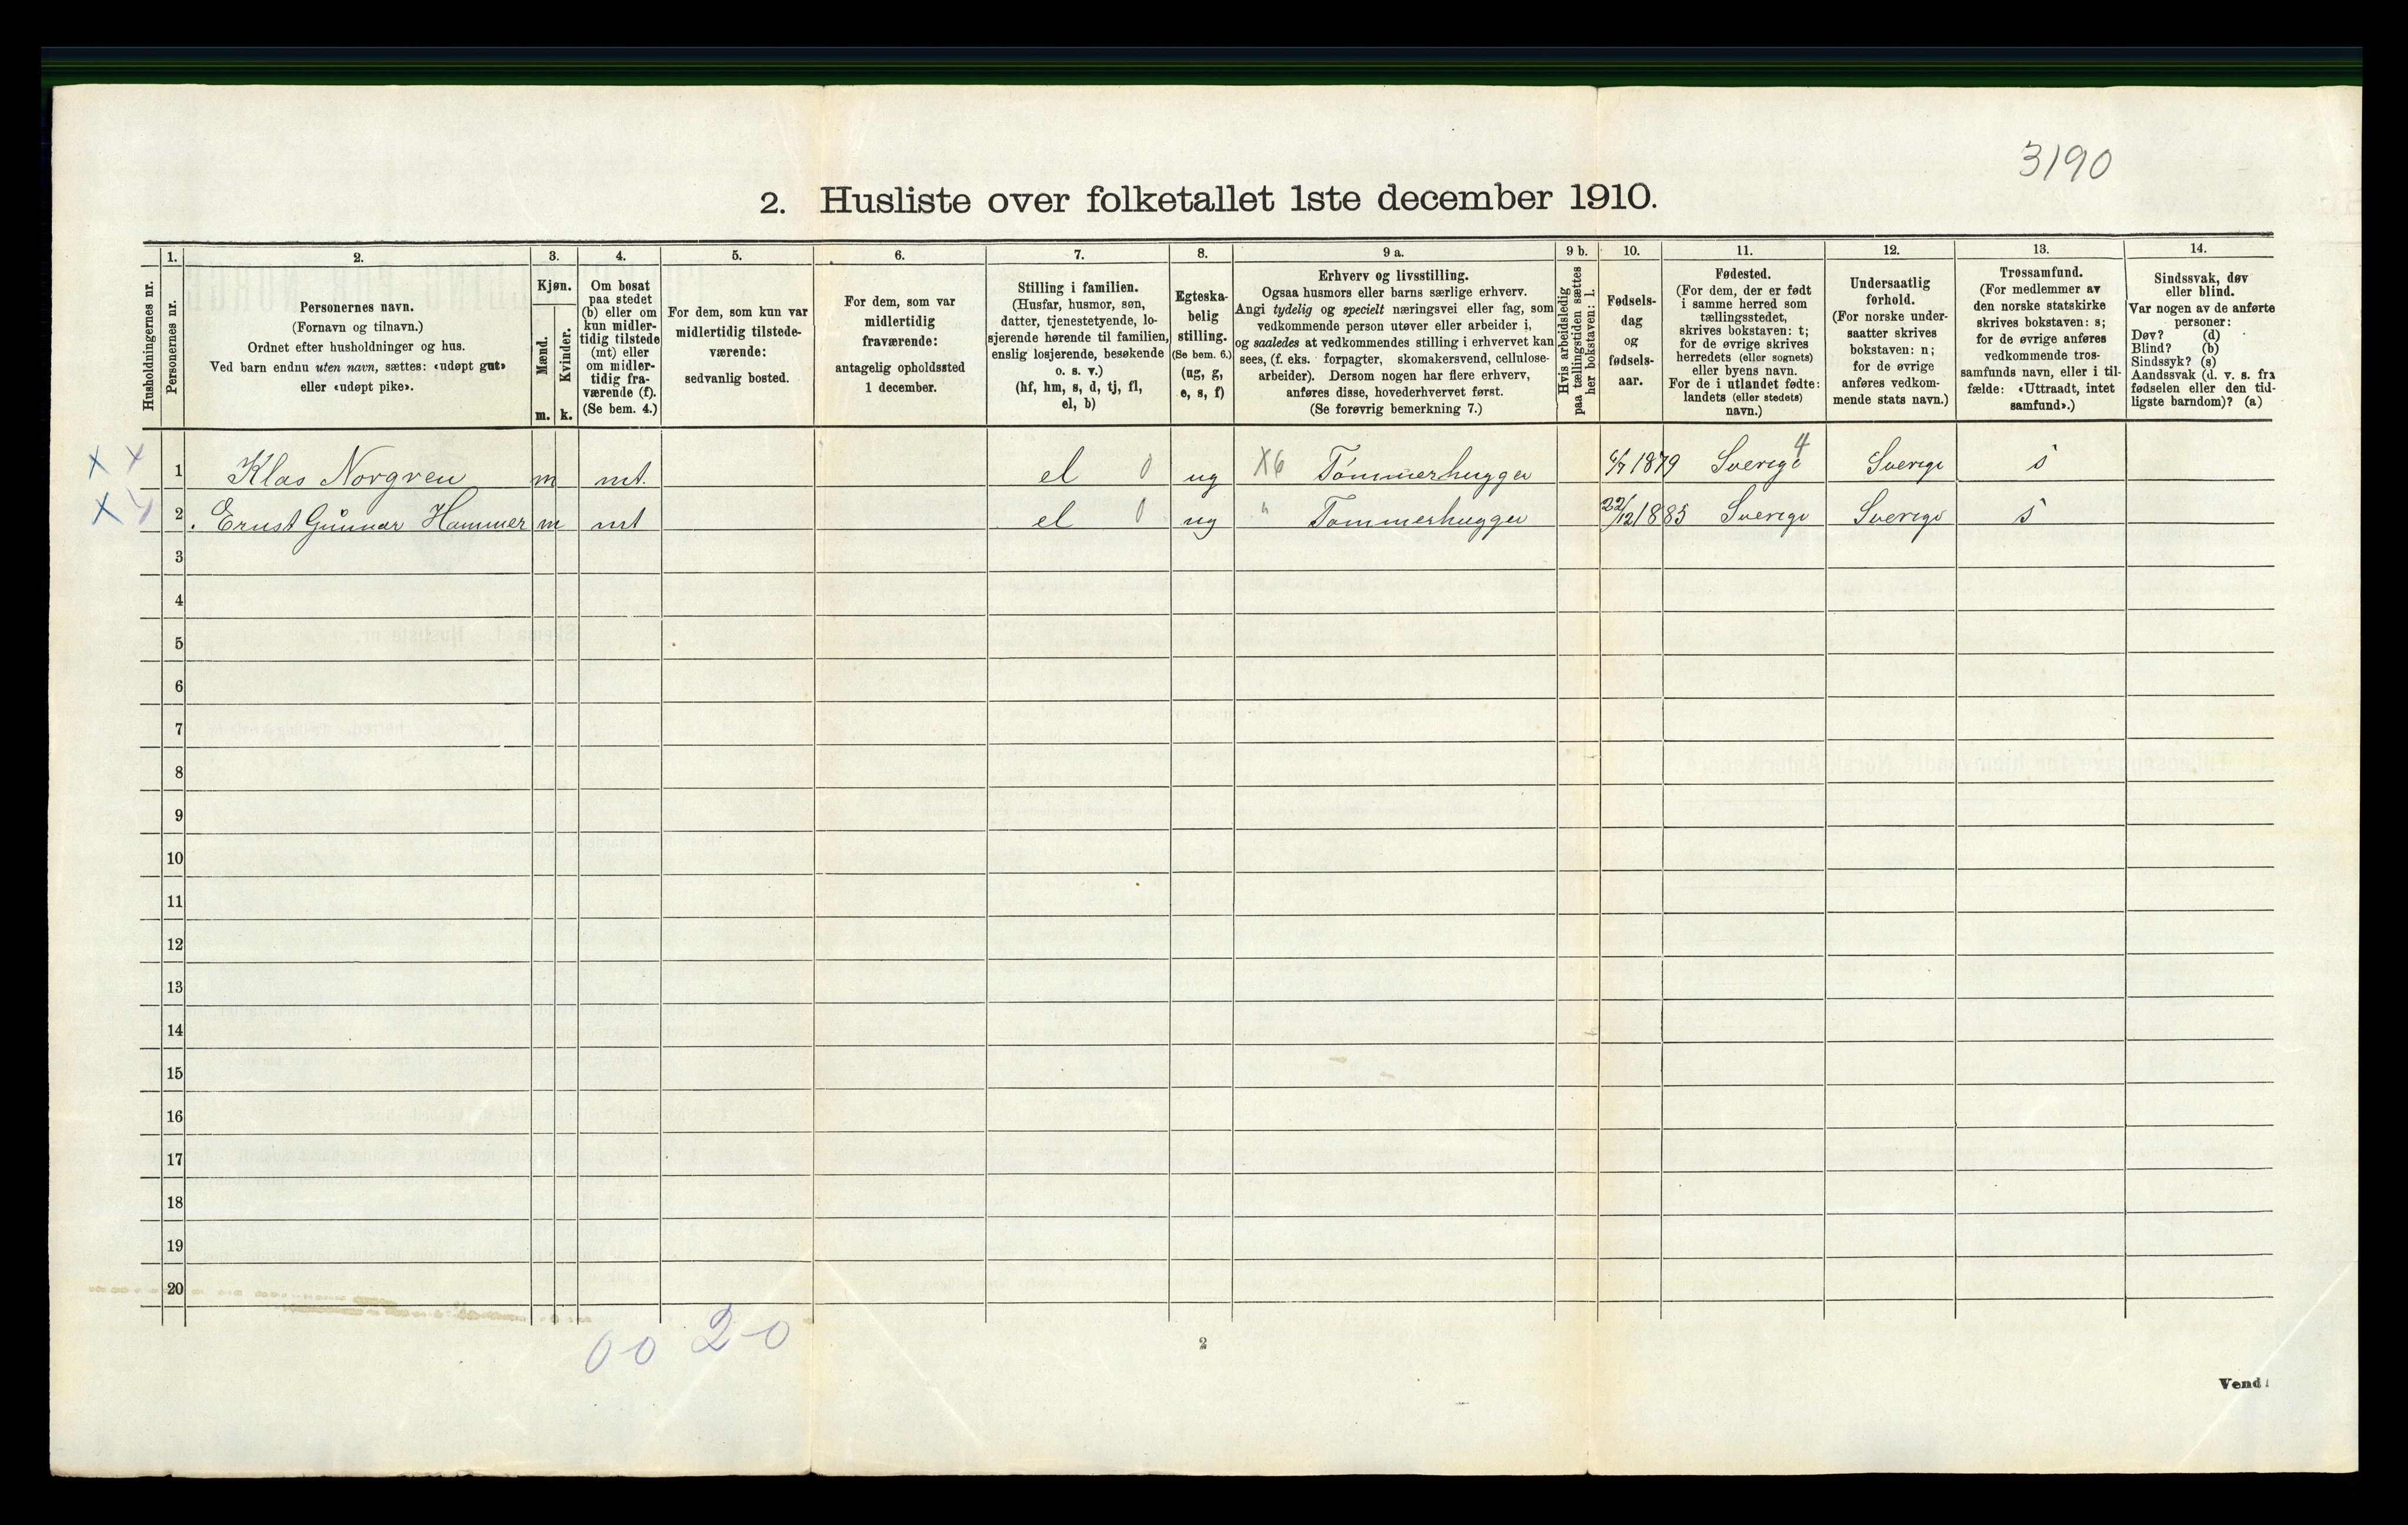 3190
2. Husliste over folketallet 1ste december 1910.
Husholdningernes nr.
1.
Personernes nr.
2.
Personernes navn.
(Fornavn og tilnavn.)
Ordnet efter husholdninger og hus.
Ved barn endnu uten navn, sættes: «udøpt gut»
eller «udøpt pike».
3.
Kjøn.
Mænd.
Kvinder.
m. k.
4.
Om bosat
paa stedet
(b) eller om
kun midler-
tidig tilstede
(mt) eller
om midler-
tidig fra-
værende (f).
(Se bem. 4.)
5.
For dem, som kun var
midlertidig tilstede-
værende:
sedvanlig bosted.
6.
For dem, som var
midlertidig
fraværende:
antagelig opholdssted
1 december.
7.
Stilling i familien.
(Husfar, husmor, søn,
datter, tjenestetyende, lo-
sjerende hørende til familien,
enslig losjerende, besøkende
o. s. v.)
(hf, hm, s, d, tj, fl,
el, b)
8.
Egteska-
belig
stilling.
(Se bem. 6.)
(ug, g,
e, s, f)
9 a.
Erhverv og livsstilling.
Ogsaa husmors eller barns særlige erhverv.
Angi tydelig og specielt næringsvei eller fag, som
vedkommende person utøver eller arbeider i,
og saaledes at vedkommendes stilling i erhvervet kan
sees, (f. eks. forpagter, skomakersvend, cellulose-
arbeider). Dersom nogen har flere erhverv,
anføres disse, hovederhvervet først.
(Se forøvrig bemerkning 7.)
9 b.
Hvis arbeidsledig
paa tællingstiden sættes
her bokstaven: l.
10.
Fødsels-
dag
og
fødsels-
aar.
11.
Fødested.
(For dem, der er født
i samme herred som
tællingsstedet,
skrives bokstaven: t;
for de øvrige skrives
herredets (eller sognets)
eller byens navn.
For de i utlandet fødte:
landets (eller stedets)
navn.)
12.
Undersaatlig
forhold.
(For norske under-
saatter skrives
bokstaven: n;
for de øvrige
anføres vedkom-
mende stats navn.)
13.
Trossamfund.
(For medlemmer av
den norske statskirke
skrives bokstaven: s;
for de øvrige anføres
vedkommende tros-
samfunds navn, eller i til-
fælde: «Uttraadt, intet
samfund».)
14.
Sindssvak, døv
eller blind.
Var nogen av de anførte
personer:
Døv? (d)
Blind? (b)
Sindssyk? (s)
Aandssvak (d. v. s. fra
fødselen eller den tid-
ligste barndom)? (a)
X X 1 Klas Norgren m mt. el 0 ug X6 Tømmerhugger 1879 Sverige 4 Sverige s
X 2 Ernst Gunnar Hammer m mt el 0 ug " Tømmerhugger 22/12 1885 Sverige Sverige s
3
4
5
6
7
8
9
10
11
12
13
14
15
16
17
18
19
20
0-0 2-0
2
Vend!